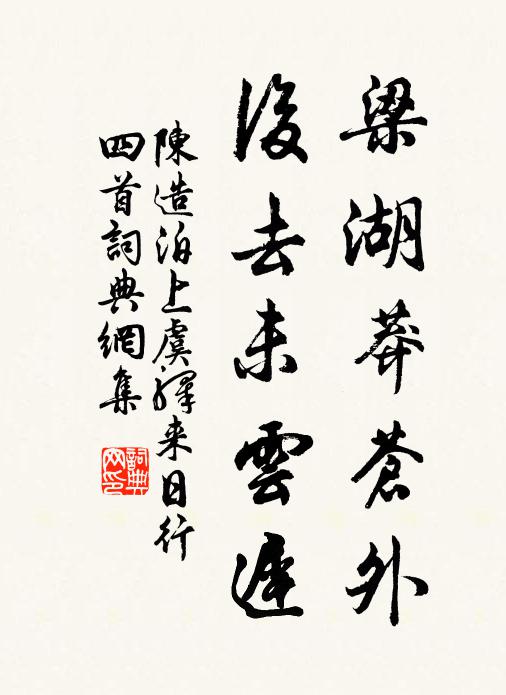 梁湖莽蒼外
後去未雲遲
陳造泊上虞驛来日行
四首詞典網集
詞典網印